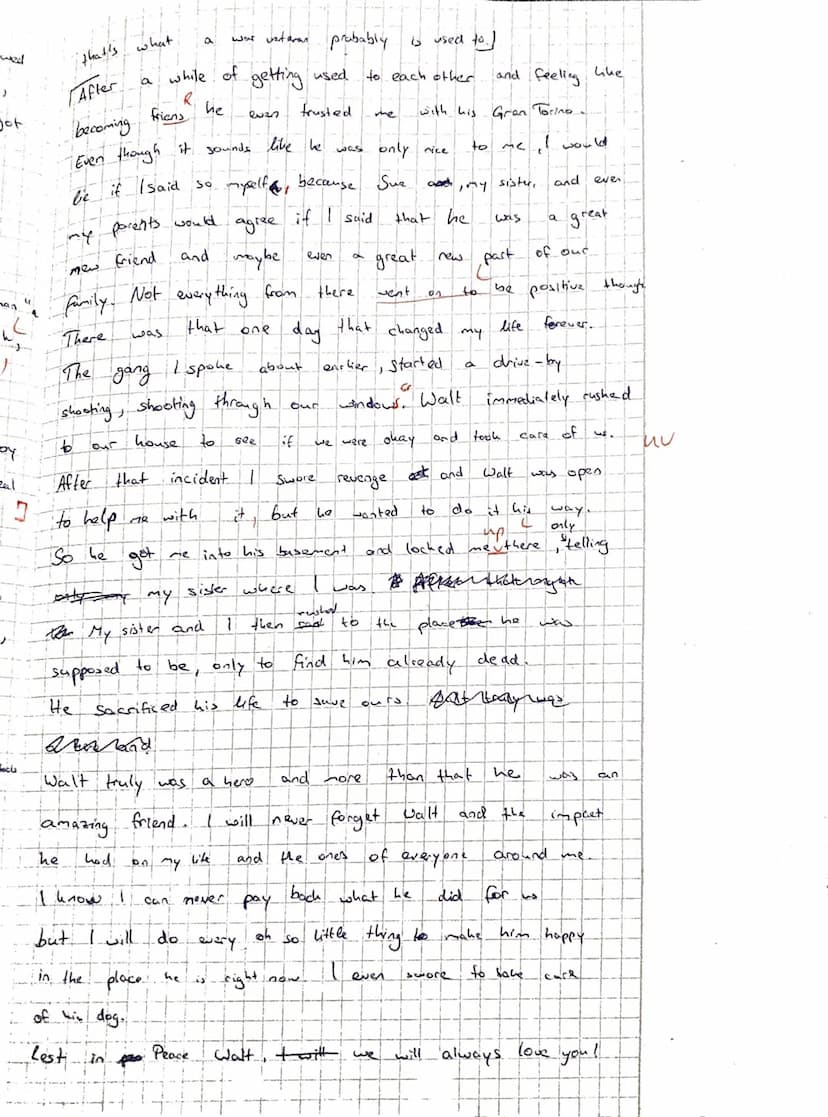 that's what a war veteran probably is used to]
After a while of getting used to each other and feeling like
becoming friens R he even trusted me with his Gran Torino.
Even though it sounds like he was only nice to me, I would
lie if I said so myself, because Sue, my sister, and even
my parents would agree if I said that he was a great
new friend and maybe even a great new part of our
family. Not everything from there went on to be positive though
There was that one day that changed my life forever.
The gang I spoke about earlier, started a drive-by
shooting, shooting through our windows. Gr Walt immediately rushed
to our house to see if we were okay and took care of us.
After that incident I swore revenge and Walt was open
to help me with it, but he wanted to do it his way.
So he got me into his basement and locked me up there, only telling
my sister where I was.
My sister and I then rushed to the place he was
supposed to be, only to find him already dead.
He sacrificed his life to save ours.
Walt truly was a hero and more than that he was an
amazing friend. I will never forget Walt and the impact
he had on my life and the ones of everyone around me.
I know I can never pay back what he did for us
but I will do every oh so little thing to make him happy
in the place he is right now. I even swore to take care
of his dog.
Rest in Peace Walt, we will always love you!